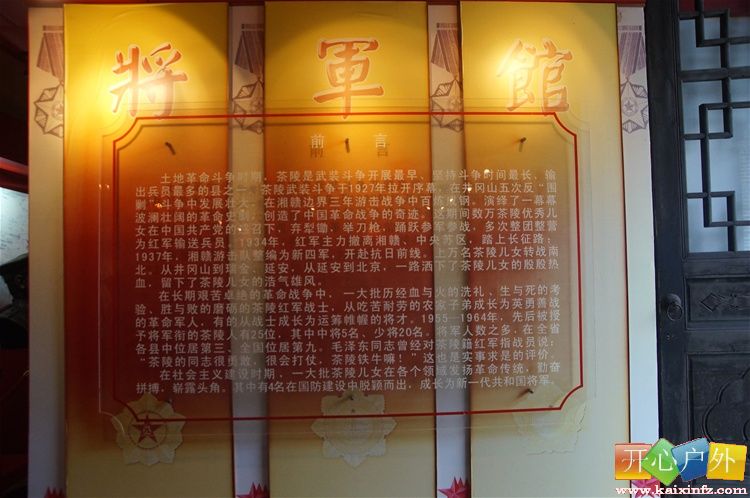 將軍館
前言
土地革命斗争时期，茶陵是武装斗争开展最早、坚持斗争时间最长、输
出兵员最多的县之一。茶陵武装斗争于1927年拉开序幕，在井冈山五次反“围
剿”斗争中发展壮大，在湘赣边界三年游击战争中百炼成钢，演绎了一幕幕
波澜壮阔的革命史剧，创造了中国革命战争的奇迹。这期间数万茶陵优秀儿
女在中国共产党的号召下，弃犁锄，举刀枪，踊跃参军参战，多次整团整营
为红军输送兵员。1934年，红军主力撤离湘赣、中央苏区，踏上长征路；
1937年，湘赣游击队整编为新四军，开赴抗日前线。上万名茶陵儿女转战南
北。从井冈山到瑞金、延安，从延安到北京，一路洒下了茶陵儿女的殷殷热
血，留下了茶陵儿女的浩气雄风。
在长期艰苦卓绝的革命战争中，一大批历经血与火的洗礼、生与死的考
验、胜与败的磨砺的茶陵红军战士，从吃苦耐劳的农家子弟成长为英勇善战
的革命军人，有的从战士成长为运筹帷幄的将才。1955—1964年，先后被授
予将军衔的茶陵人有25位，其中中将5名，少将20名。将军人数之多，在全省
各县中位居第三，全国位居第九。毛泽东同志曾经对茶陵籍红军指战员说：
“茶陵的同志很勇敢，很会打仗，茶陵铁牛嘛！”这也是实事求是的评价。
在社会主义建设时期，一大批茶陵儿女在各个领域发扬革命传统，勤奋
拼搏，崭露头角。其中有4名在国防建设中脱颖而出，成长为新一代共和国将军。
开心户外
www.kaixinfz.com